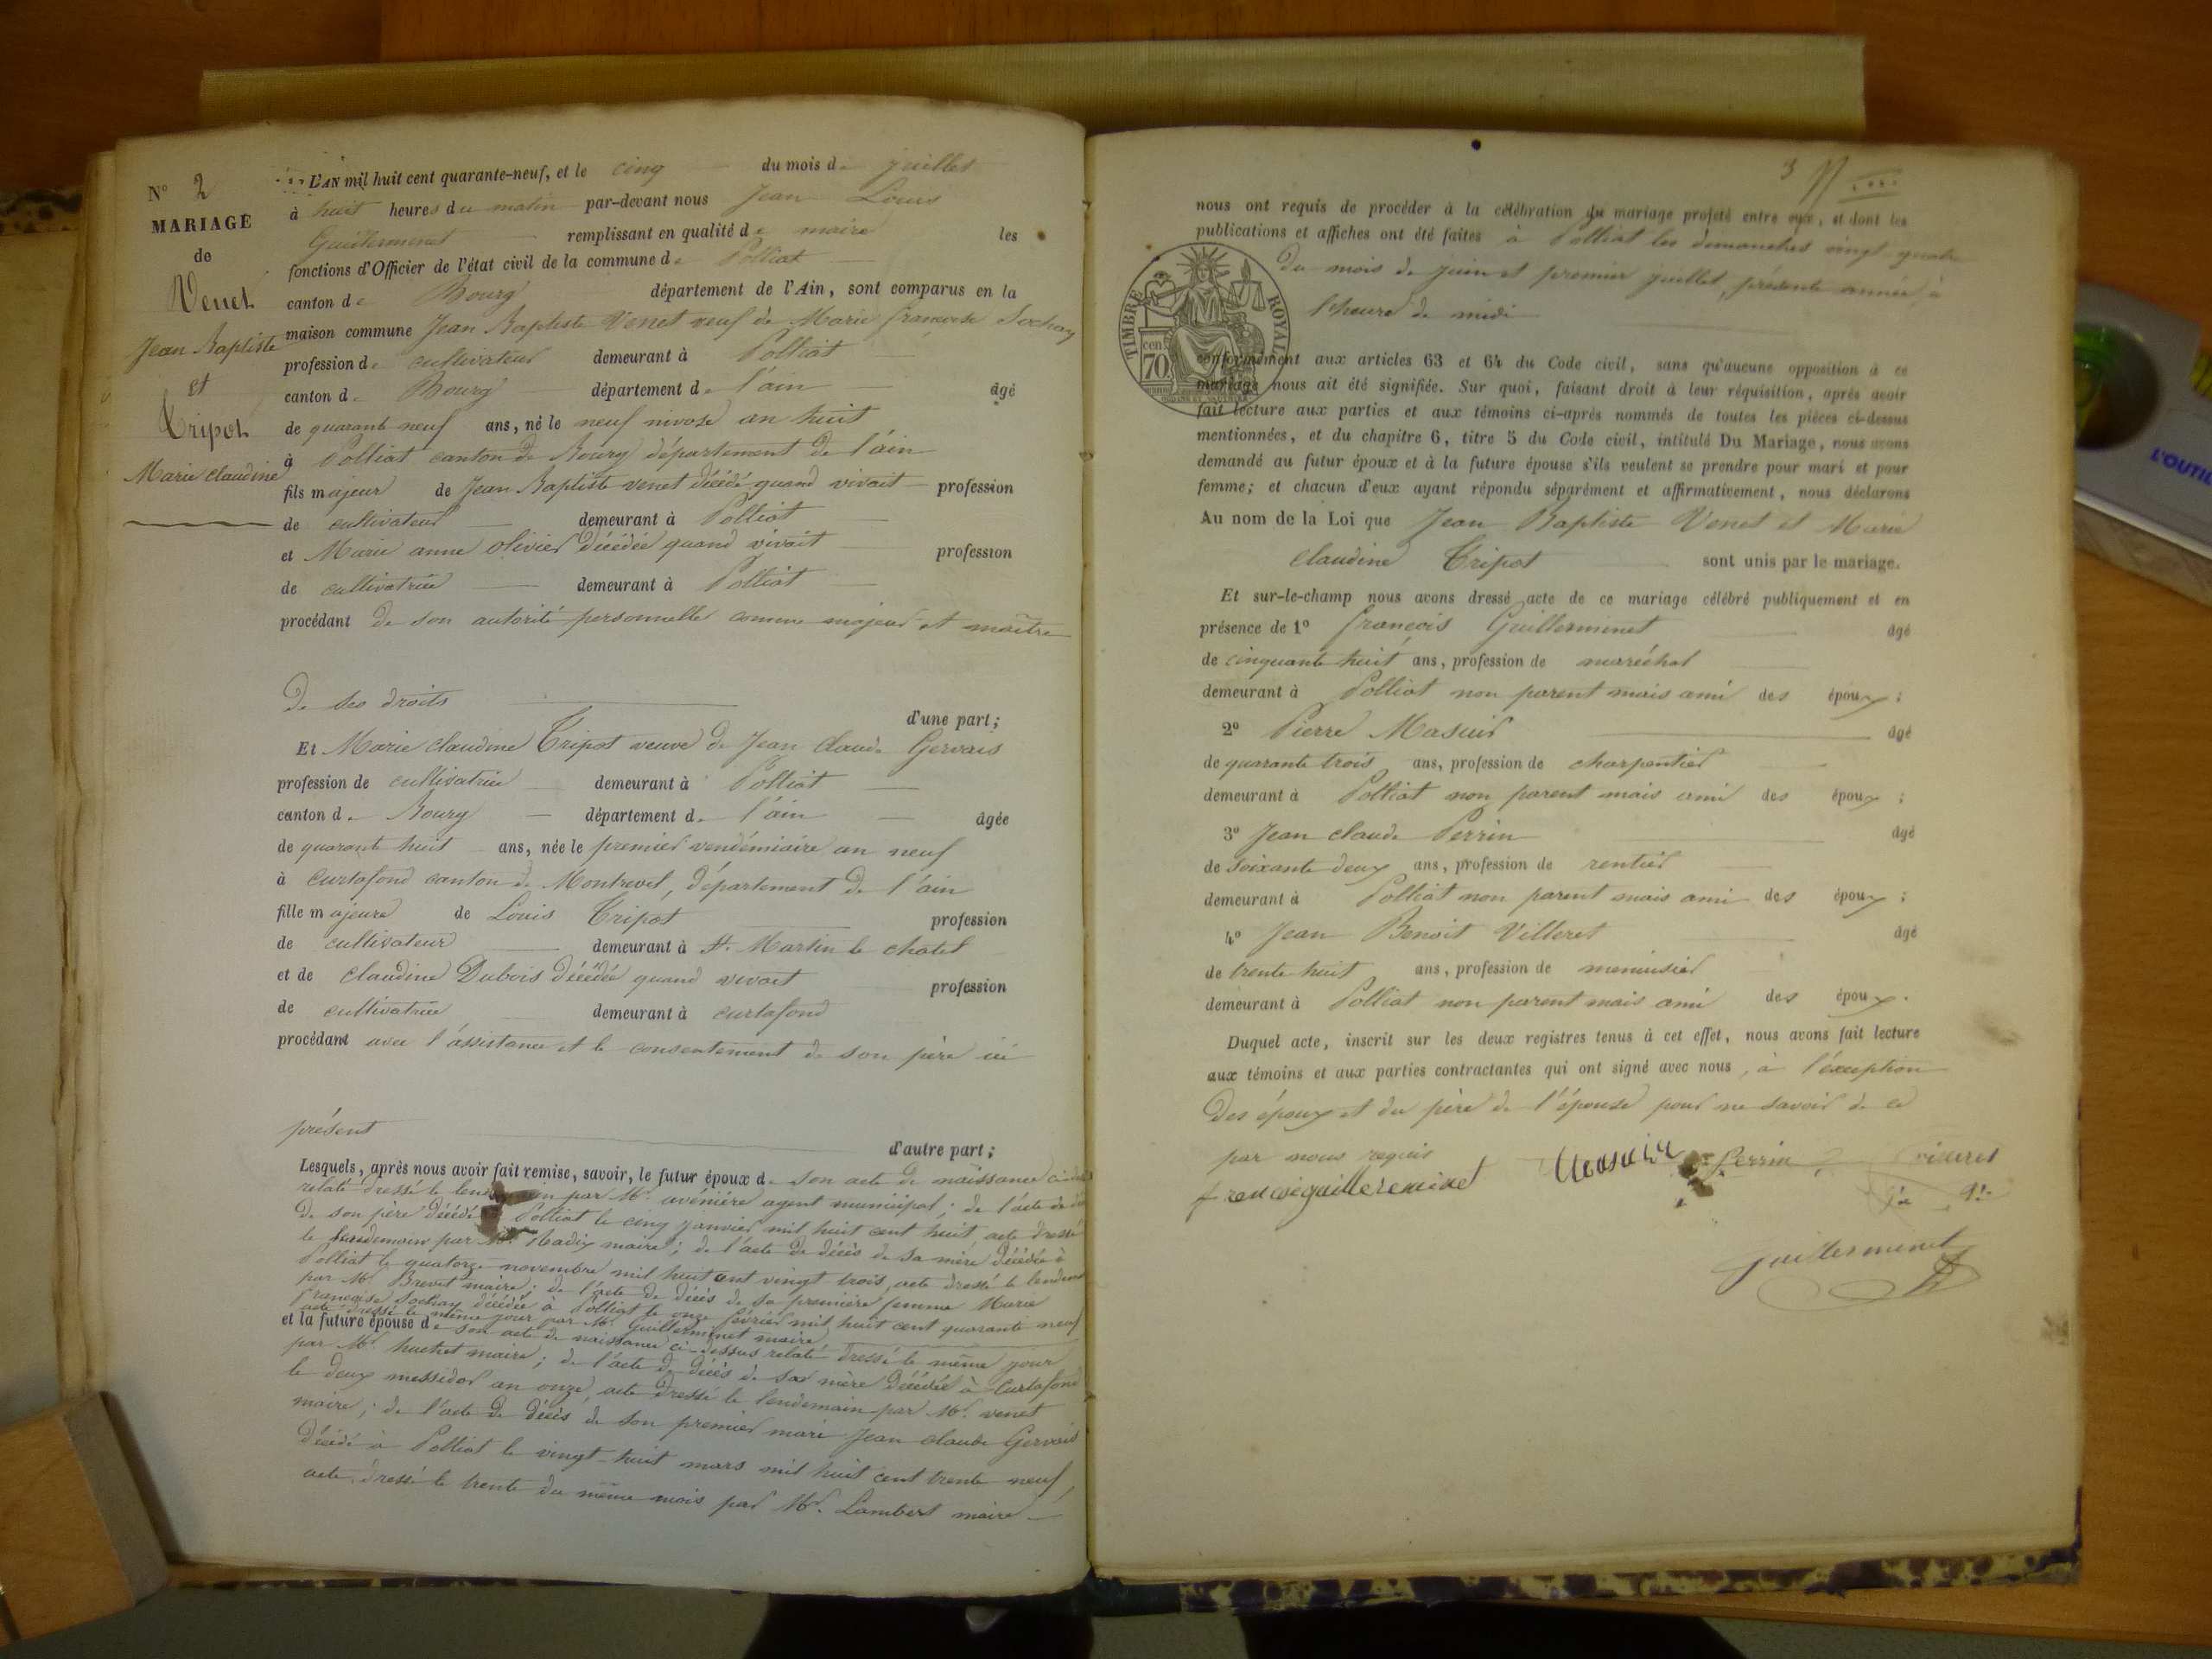 N° 2
MARIAGE
de
Venet
Jean Baptiste
et
Tripot
Marie claudine
L'AN mil huit cent quarante-neuf, et le cinq du mois de juillet
à huit heures du matin par-devant nous Jean Louis
Guillerminet remplissant en qualité de maire les
fonctions d'Officier de l'état civil de la commune de Polliat
canton de Bourg département de l'Ain, sont comparus en la
maison commune Jean Baptiste Venet veuf de Marie francoise Sochay
profession de cultivateur demeurant à Polliat
canton de Bourg département de l'ain âgé
de quarante neuf ans, né le neuf nivose an huit
à Polliat canton de Bourg département de l'ain
fils majeur de Jean Baptiste venet décédé quand vivait profession
de cultivateur demeurant à Polliat
et Marie anne olivier décédée quand vivait profession
de cultivatrice demeurant à Polliat
procédant de son autorité personnelle comme majeur et maître
de ses droits
d'une part;
Et Marie claudine Tripot veuve de Jean claude Gervais
profession de cultivatrice demeurant à Polliat
canton de Bourg département de l'ain âgée
de quarante huit ans, née le premier vendémiaire an neuf
à Curtafond canton de Montrevel, département de l'ain
fille majeure de Louis Tripot profession
de cultivateur demeurant à St. Martin le chatel
et de claudine Dubois décédée quand vivait profession
de cultivatrice demeurant à curtafond
procédant avec l'assistance et le consentement de son père ici
présent
d'autre part;
Lesquels, après nous avoir fait remise, savoir, le futur époux de son acte de naissance
relaté dressé le par Mr. avénière agent municipal; de l'acte de
de son père décédé Polliat le cinq janvier mil huit cent huit, acte dressé
le lendemain par Mr. maire; de l'acte de décès de sa mère décédée à
Polliat le quatorze novembre mil huit cent vingt trois, acte dressé le
par Mr. Brevet maire; de l'acte de décès de sa première femme Marie
francoise Sochay décédée à Polliat le onze février mil huit cent quarante neuf
acte dressé le même jour par Mr. Guillerminet maire
et la future épouse de son acte de naissance ci-dessus relaté dressé le même jour
par Mr. huchet maire; de l'acte de décès de sa mère décédée à Curtafond
le deux messidor an onze, acte dressé le lendemain par Mr. venet
maire; de l'acte de décès de son premier mari Jean claude Gervais
décédé à Polliat le vingt-huit mars mil huit cent trente neuf,
acte dressé le trente du même mois par Mr. Lambert maire
3
nous ont requis de procéder à la célébration du mariage projeté entre eux, et dont les
publications et affiches ont été faites à Polliat les dimanches vingt quatre
du mois de juin et premier juillet, présente année, à
l'heure de midi
TIMBRE ROYAL
cen
70
conformément aux articles 63 et 64 du Code civil, sans qu'aucune opposition à ce
mariage nous ait été signifiée. Sur quoi, faisant droit à leur réquisition, après avoir
fait lecture aux parties et aux témoins ci-après nommés de toutes les pièces ci-dessus
mentionnées, et du chapitre 6, titre 5 du Code civil, intitulé Du Mariage, nous avons
demandé au futur époux et à la future épouse s'ils veulent se prendre pour mari et pour
femme; et chacun d'eux ayant répondu séparément et affirmativement, nous déclarons
Au nom de la Loi que Jean Baptiste Venet et Marie
claudine Tripot sont unis par le mariage.
Et sur-le-champ nous avons dressé acte de ce mariage célébré publiquement et en
présence de 1° françois Guillerminet âgé
de cinquante huit ans, profession de maréchal
demeurant à Polliat non parent mais ami des époux;
2° Pierre Masuir âgé
de quarante trois ans, profession de charpentier
demeurant à Polliat non parent mais ami des époux;
3° Jean claude Perrin âgé
de soixante deux ans, profession de rentier
demeurant à Polliat non parent mais ami des époux;
4° Jean Benoit Villeret âgé
de trente huit ans, profession de menuisier
demeurant à Polliat non parent mais ami des époux.
Duquel acte, inscrit sur les deux registres tenus à cet effet, nous avons fait lecture
aux témoins et aux parties contractantes qui ont signé avec nous, à l'éxception
des époux et du père de l'épouse pour ne savoir de ce
par nous requis
Perrin
guillerminet
L'OUTIL